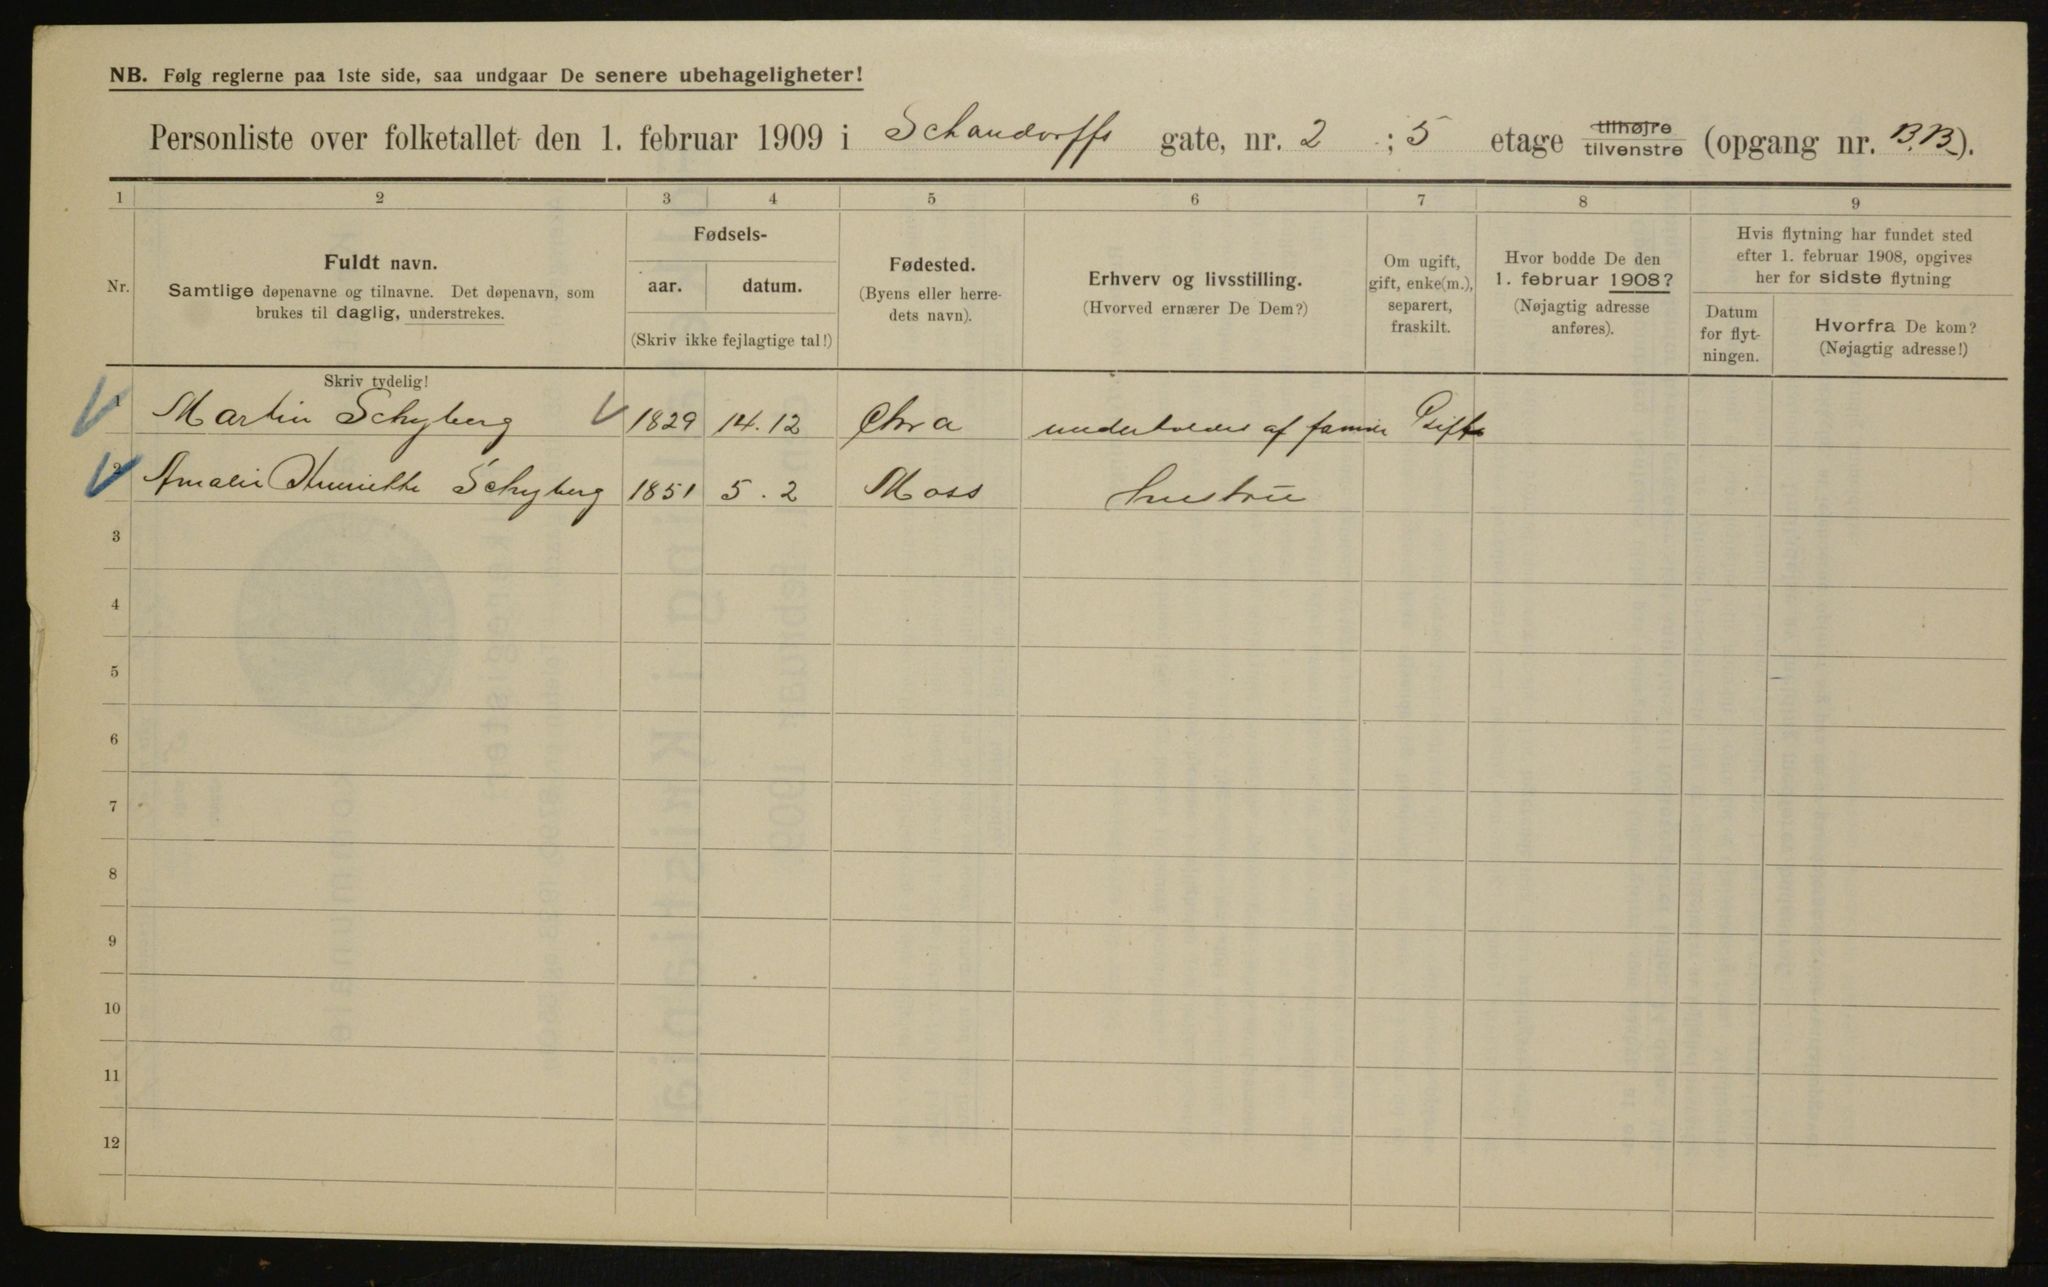 NB. Følg reglerne paa 1ste side, saa undgaar De senere ubehageligheter!
Personliste over folketallet den 1. februar 1909 i Schandorffs gate, nr. 2 ; 5 etage tilhøjre tilvenstre (opgang nr. B.B).
1 2 3 4 5 6 7 8 9
Nr.
Fuldt navn.
Samtlige døpenavne og tilnavne. Det døpenavn, som
brukes til daglig, understrekes.
Fødsels-
aar. datum.
(Skriv ikke fejlagtige tal!)
Fødested.
(Byens eller herre-
dets navn).
Erhverv og livsstilling.
(Hvorved ernærer De Dem?)
Om ugift,
gift, enke(m.),
separert,
fraskilt.
Hvor bodde De den
1. februar 1908?
(Nøjagtig adresse
anføres).
Hvis flytning har fundet sted
efter 1. februar 1908, opgives
her for sidste flytning
Datum
for flyt-
ningen.
Hvorfra De kom?
(Nøjagtig adresse!)
Skriv tydelig!
1 Martin Schyberg 1829 14.12 Chra underholdes af familie Gift
2 Amalie Henriette Schyberg 1851 5.2 Moss hustru
3
4
5
6
7
8
9
10
11
12